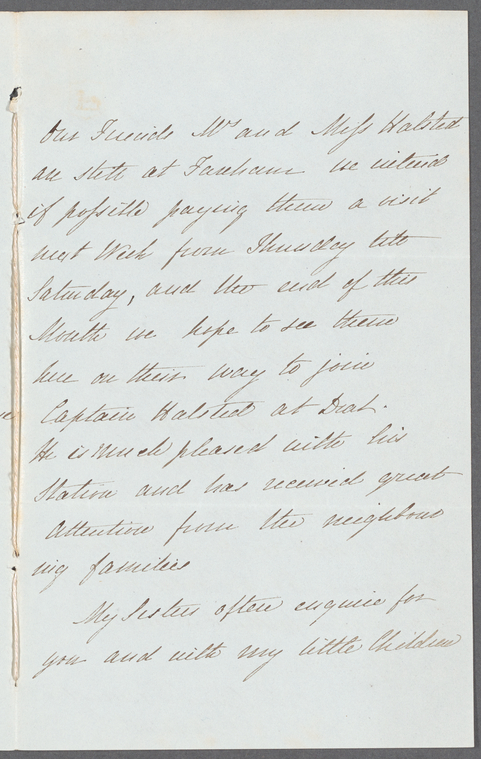 Our Friends Mrs and Miss Halsted
are still at Fareham we intend
if possible paying them a visit
next Week from Thursday till
Saturday, and the end of this
Month we hope to see them
here on their way to join
Captain Halsted at Deal.
He is much pleased with his
Station and has received great
attention from the neighbour
ing families
My Sisters often enquire for
you and with my little Children